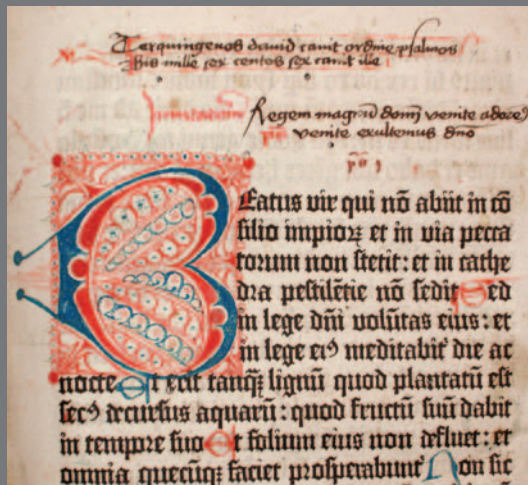 Terquingenos david canit ordine psalmos
Bis mille sex centos sex canit ille
Inuitatorium Regem magnū domī venite adorem9
venite exultemus dno
pꝰ 1
Beatus vir qui nō abiit in cō
silio impioꝝ et in via pecca
torum non stetit: et in cathe
dra pestilētie nō sedit Sed
in lege dn̄i volūtas eius: et
in lege ei9 meditabit᷑ die ac
nocte Et erit tanqꝫ lignū quod plantatū est
sec9 decursus aquarū: quod fructū suū dabit
in tempore suo Et folium eius non defluet: et
omnia quecūqꝫ faciet prosperabunt᷑ Non sic